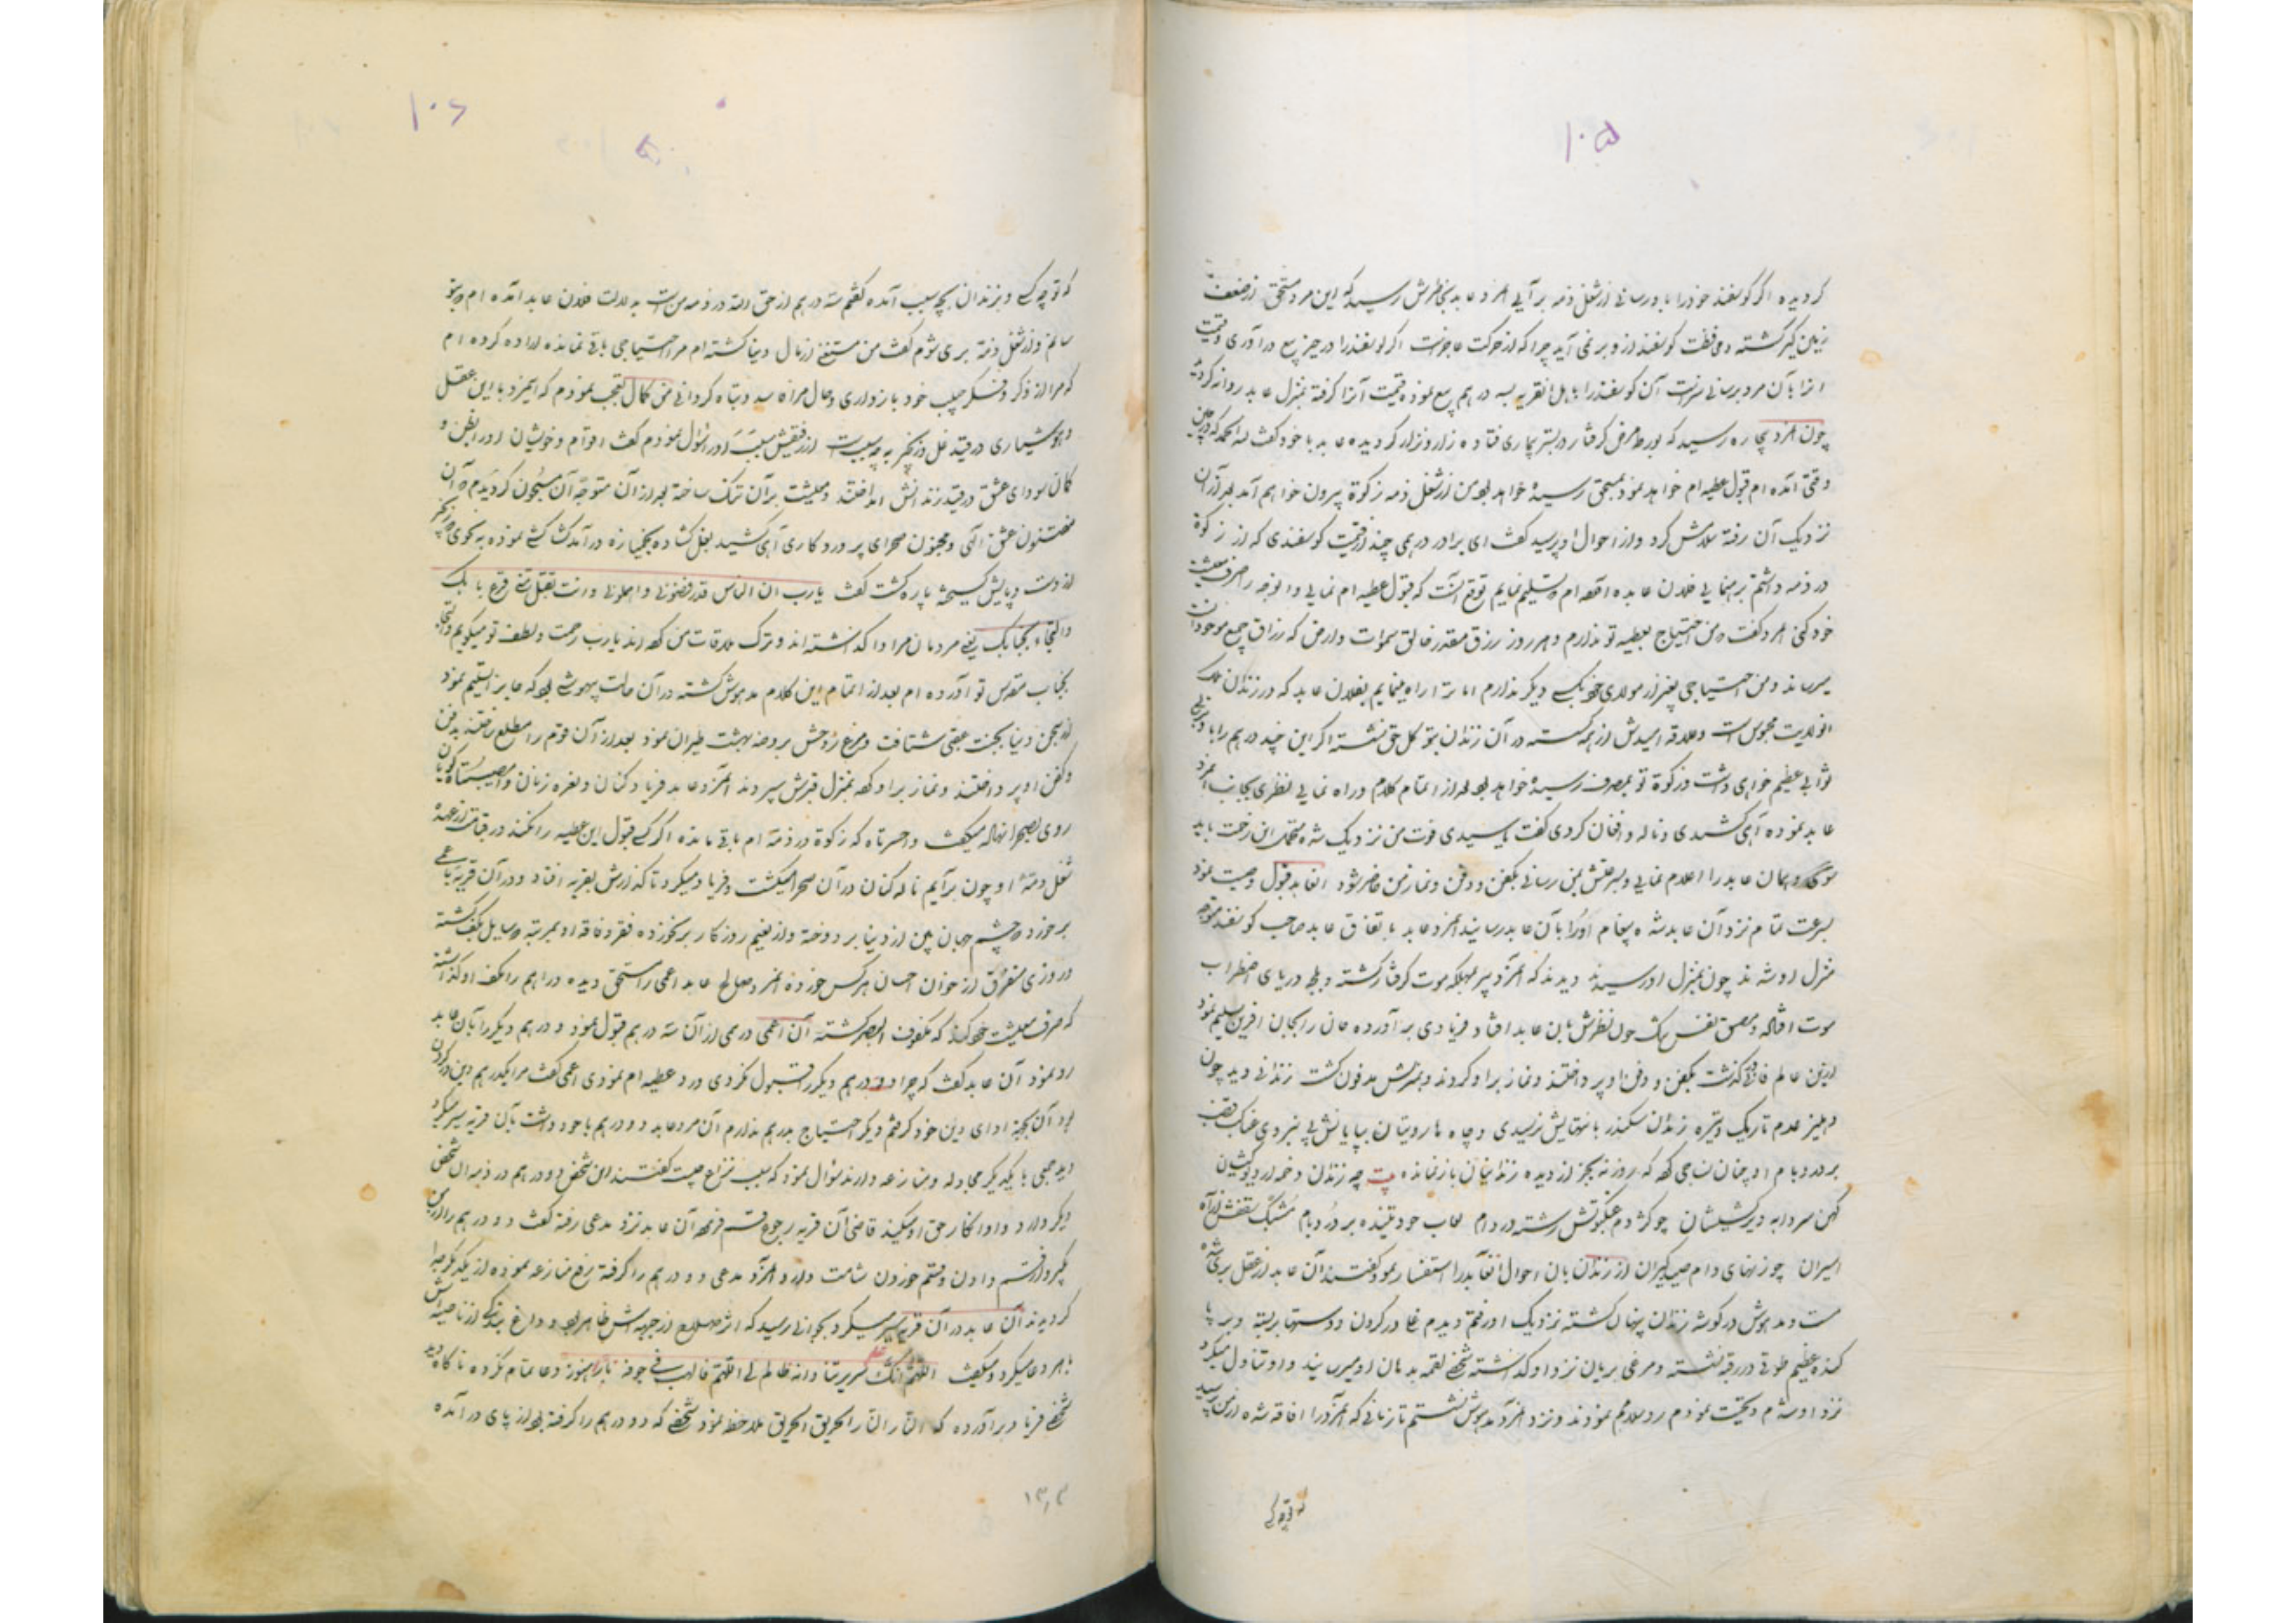 ۱۰۵
کردیده اگر کوسفند خود را باو رسانی از شغل ذمه بر آیی مرد عابد بخاطرش رسید که این مرد مستحق از ضعف
زمین کیر کشته محافظت کوسفند ازو بر نمی آید چرا که از حرکت عاجزست اگر کوسفند را در حیز بیع در آوری و قیمت
انرا بآن مرد برسانی آن کوسفند را باهل انقریه بسه درهم بیع نموده قیمت آنرا کرفته بمنزل عابد روانه کردید
چون بمرد بیچاره رسید که بورطه مرض کرفتار در بستر بیماری فتاده زار و نزار کردیده عابد با خود کفت که در چنین
وقتی آمده ام قبول عطیه ام خواهد نمود بمستحق رسیده خواهد بود من از شغل ذمه زکوة بیرون خواهم آمد بعد از آن
نزدیک آن رفته سلامش کرد و از احوال او پرسید کفت ای برادر درهمی چند از قیمت کوسفندی که از زکوة
در ذمه داشتم برهنمایی فلان عابد آورده ام تسلیم نمایم توقع آنست که قبول عطیه ام نمایی و آنوجه را صرف معیشت
خود کنی مرد کفت من احتیاج بعطیه تو ندارم و هر روز رزق مقدر خالق سموات و ارض که رزاق جمیع موجودات
میرساند و من احتیاجی بغیر از مولای خود بکسی دیکر ندارم اما ترا راه مینمایم بفلان عابد که در زندان ملک
انولایت محبوس است و علاقه امیدش از همه کسسته در آن زندان بتوکل حق نشسته اگر این چند درهم را باو دهی
ثوابی عظیم خواهی داشت و زکوة تو بمصرف رسیده خواهد بود بعد از اتمام کلام و راه نمایی نظری بجانب مرد
عابد نموده آهی کشیدی و ناله و افغان کردی کفت یا سیدی فوت من نزدیک شده
همان عابد را اعلام نمایی و بسرعتش بمن رسانی بکفن و دفن و نماز من حاضر شود انعابد قبول وصیت نمود
بسرعت تمام نزد آن عابد شده پیغام او را بآن عابد رسانید مرد عابد باتفاق عابد صاحب کوسفند متوجه
منزل او شدند چون بمنزل او رسیدند دیدند که آنمرد پیر بمهلکه موت کرفتار کشته و بلجه دریای اضطراب
موت افتاده چون نظرش بان عابد افتاد فریادی بر آورده جان را بجان افرین تسلیم نمود
ازین عالم فانی در کذشت بکفن و دفن او پرداختند و نماز بر او کردند و مدفون کشت زندانی دید چون
دهلیز عدم تاریک و تیره زندان سکندر بانتهایش نرسیدی و چاه ماروتیان بپایانش پی نبردی عنکبوت
بر در و بام او چنان نساجی کرد که روزنه بجز از دیده زندانیان باز نمانده بیت چه زندان دخمه
کهن سردابه دیرکشیشان چو کژدم عنکبوتش رشته در دام لعاب خود تنیده بر در و بام مشبک سقفش از آه
اسیران چو زنهای دام صیدکیران از زندان بان احوال انعابد را استفسار نمود کفتند آن عابد از عقل بری شده
مست و مدهوش در کوشه زندان پنهان کشته نزدیک او رفتم دیدم غل در کردن و دستها بربسته و بر پا
کنده عظیم طوقی در رقبه نشسته و مرغی بریان نزد او کذاشته شخصی لقمه بدهان او میرساند و او تناول میکرد
نزد او شدم و تحیت نمودم رد سلامم نمودند و نزد آنمرد مدهوش نشستم تا زمانی که آنمرد را افاقه شده از من پرسید
که تو چه کسی
۱۰۶
که تو چه کسی و بزندان بچه سبب آمده کفتم سه درهم از حق الله در ذمه منست بدلالت فلان عابد آمده ام بتو
رسانم و از شغل ذمه بری شوم کفت من مستغنی از مال دنیا کشته ام مرا احتیاجی باقی نمانده اراده کرده ام
که مرا از ذکر و فکر حبیب خود بازداری و حال مرا فاسد و تباه کردانی من کمال تعجب نمودم که آنمرد با این عقل
و هوشیاری در قید غل و زنجیر بچه سببست از رفیقش سبب او را سؤال نمودم کفت اقوام و خویشان او را بظن و
کمان سودای عشق در قید زندانش انداختند و معیشت بر آن ترک ساخته بعد از آن متوجه آن مسجون کردیدم آن
مفتون عشق الهی و مجنون صحرای پروردکاری آهی کشید بغل کشاده بخمیازه درآمد کش کشی نموده به نحوی که زنجیر
از دست و پایش کسیخته پاره کشت کفت یا رب ان الناس قد رفضونی و اهملونی و انت تقبل منی قرع بابک
والتجاء بجنابک یعنی مردمان مرا وا کذاشته اند و ترک ملاقات من کرده اند یا رب رحمت و لطف تو میکویم و التجا
بجناب مقدس تو آورده ام بعد از اتمام این کلام مدهوش کشته در آن حالت بیهوشی بود که جان را تسلیم نمود
از سجن دنیا بجنت عقبی شتافت و مرغ روحش بروضه بهشت طیران نمود بعد از آن قوم را مطلع ساختند بدفن
و کفن او پرداختند و نماز بر او کرده بمنزل قبرش سپردند آنمرد عابد فریاد کنان و نعره زنان وا مصیبتاه کویان
روی بصحرا نهاد میکفت وا حسرتاه که زکوة در ذمه ام باقی مانده اگر کسی قبول این عطیه را نکند در قیامت از عهده
شغل ذمه او چون برآیم ناله کنان در آن صحرا میکشت و فریاد میکرد تا که کذرش بقریه افتاد و در آن قریه باعمی
برخورده چشم جهان بین از دنیا بردوخته و از نعیم روزکار برنخورده فقر و فاقه او بمرتبه سایل بکف کشته
در روزی متفرق از خوان احسان هر کس خورده مرد صالح عابد اعمی را مستحق دیده دراهم را بکف او کذاشته
که صرف معیشت خود کند که مکفوف البصر کشته آن اعمی درهمی از آن سه درهم قبول نمود و دو درهم دیکر را بآن عابد
رد نمود آن عابد کفت که چرا دو درهم دیکر را قبول نکردی و رد عطیه ام نمودی اعمی کفت مرا یکدرهم دین در کردن
بود آن بجهة ادای دین خود کرفتم دیکر احتیاج بدرهم ندارم آن مرد عابد دو درهم با خود داشت بآن قریه سیر میکرد
دید جمعی با یکدیکر مجادله و منازعه دارند سؤال نمود که سبب نزاع چیست کفتند این شخص دو درهم در ذمه آن شخص
دیکر دارد و او انکار حق او میکند قاضی آن قریه رجوع قسم فرموده آن عابد نزد مدعی رفته کفت دو درهم را از من
بکیر و از قسم دادن و قسم خوردن شامت دارد آنمرد مدعی دو درهم را کرفته رفع منازعه نموده از یکدیکر جدا
کردیدند آن عابد در آن قریه سیر میکرد بجوانی رسید که اثر صلاح از جبهه اش ظاهر بود و داغ بندکی از ناصیه اش
باهر دعا میکرد و میکفت اللهم انک تعلم سریرتنا وانه ظالم لی اللهم فالهب فی جوفه نارا هنوز دعا تمام نکرده ناکاه دید
شخصی فریاد برآورده که النار النار الحریق الحریق ملاحظه نمود شخصی که دو درهم را کرفته بود از پای درآمده